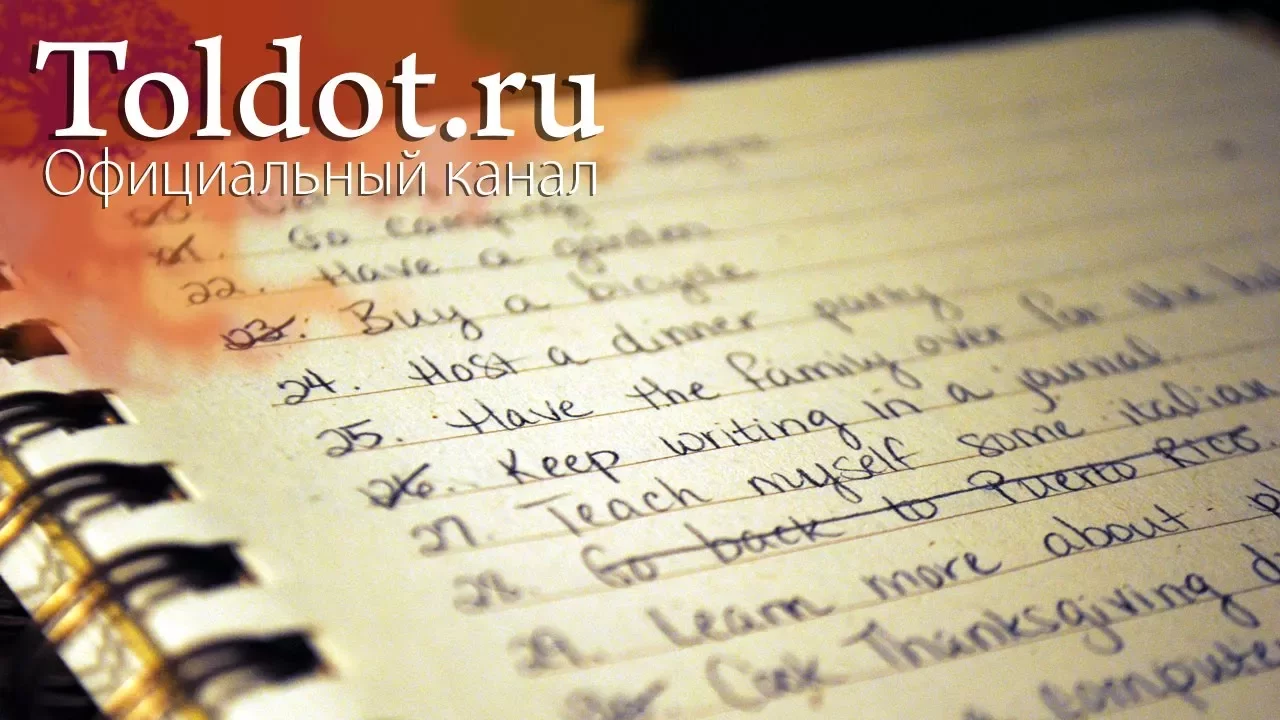 Toldot.ru
Официальный канал
Go camping
22. Have a garden
23. Buy a bicycle
24. Host a dinner party
25. Have the family over for the
26. Keep writing in a journal.
27. Teach myself some italian
28. Go back to Puerto Rico.
29. Learn more about
Cook Thanksgiving
computer